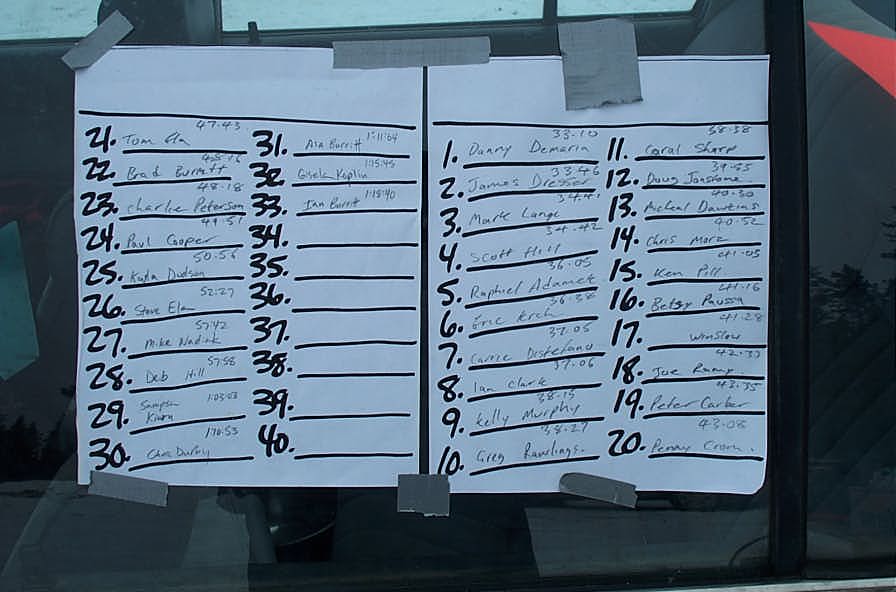 47.43
21. Tom
22. Brad Burnett
48.18
23. Charlie Peterson
49.51
24. Paul Cooper
50.56
25. Kayla Dudson
52:27
26. Steve
57:42
27. Mike
57:58
28. Deb Hill
1:03:03
29. Sampson
1:10:53
30. Chris
1:11:04
31. Asa Burritt
1:15:45
32. Gisela Koplin
1:18:40
33. Ian Burritt
34.
35.
36.
37.
38.
39.
40.
33.10
1. Danny Demaria
33.46
2. James Dresser
34.41
3. Mark Lange
34.42
4. Scott Hill
36.05
5. Raphiel Adamek
36.38
6. Eric Kerch
37.05
7. Carrie Distefano
37.06
8. Ian Clark
38.13
9. Kelly Murphy
38.27
10. Greg Rawlings.
38.38
11. Coral Sharp
39.55
12. Doug
40.30
13. Micheal Dawkins
40.52
14. Chris
41.05
15. Ken Pill
41.16
16. Betsy
41.28
17. Winslow
42.37
18. Joe Ramp.
43.35
19. Peter Garber
43.08
20. Penny Crom.